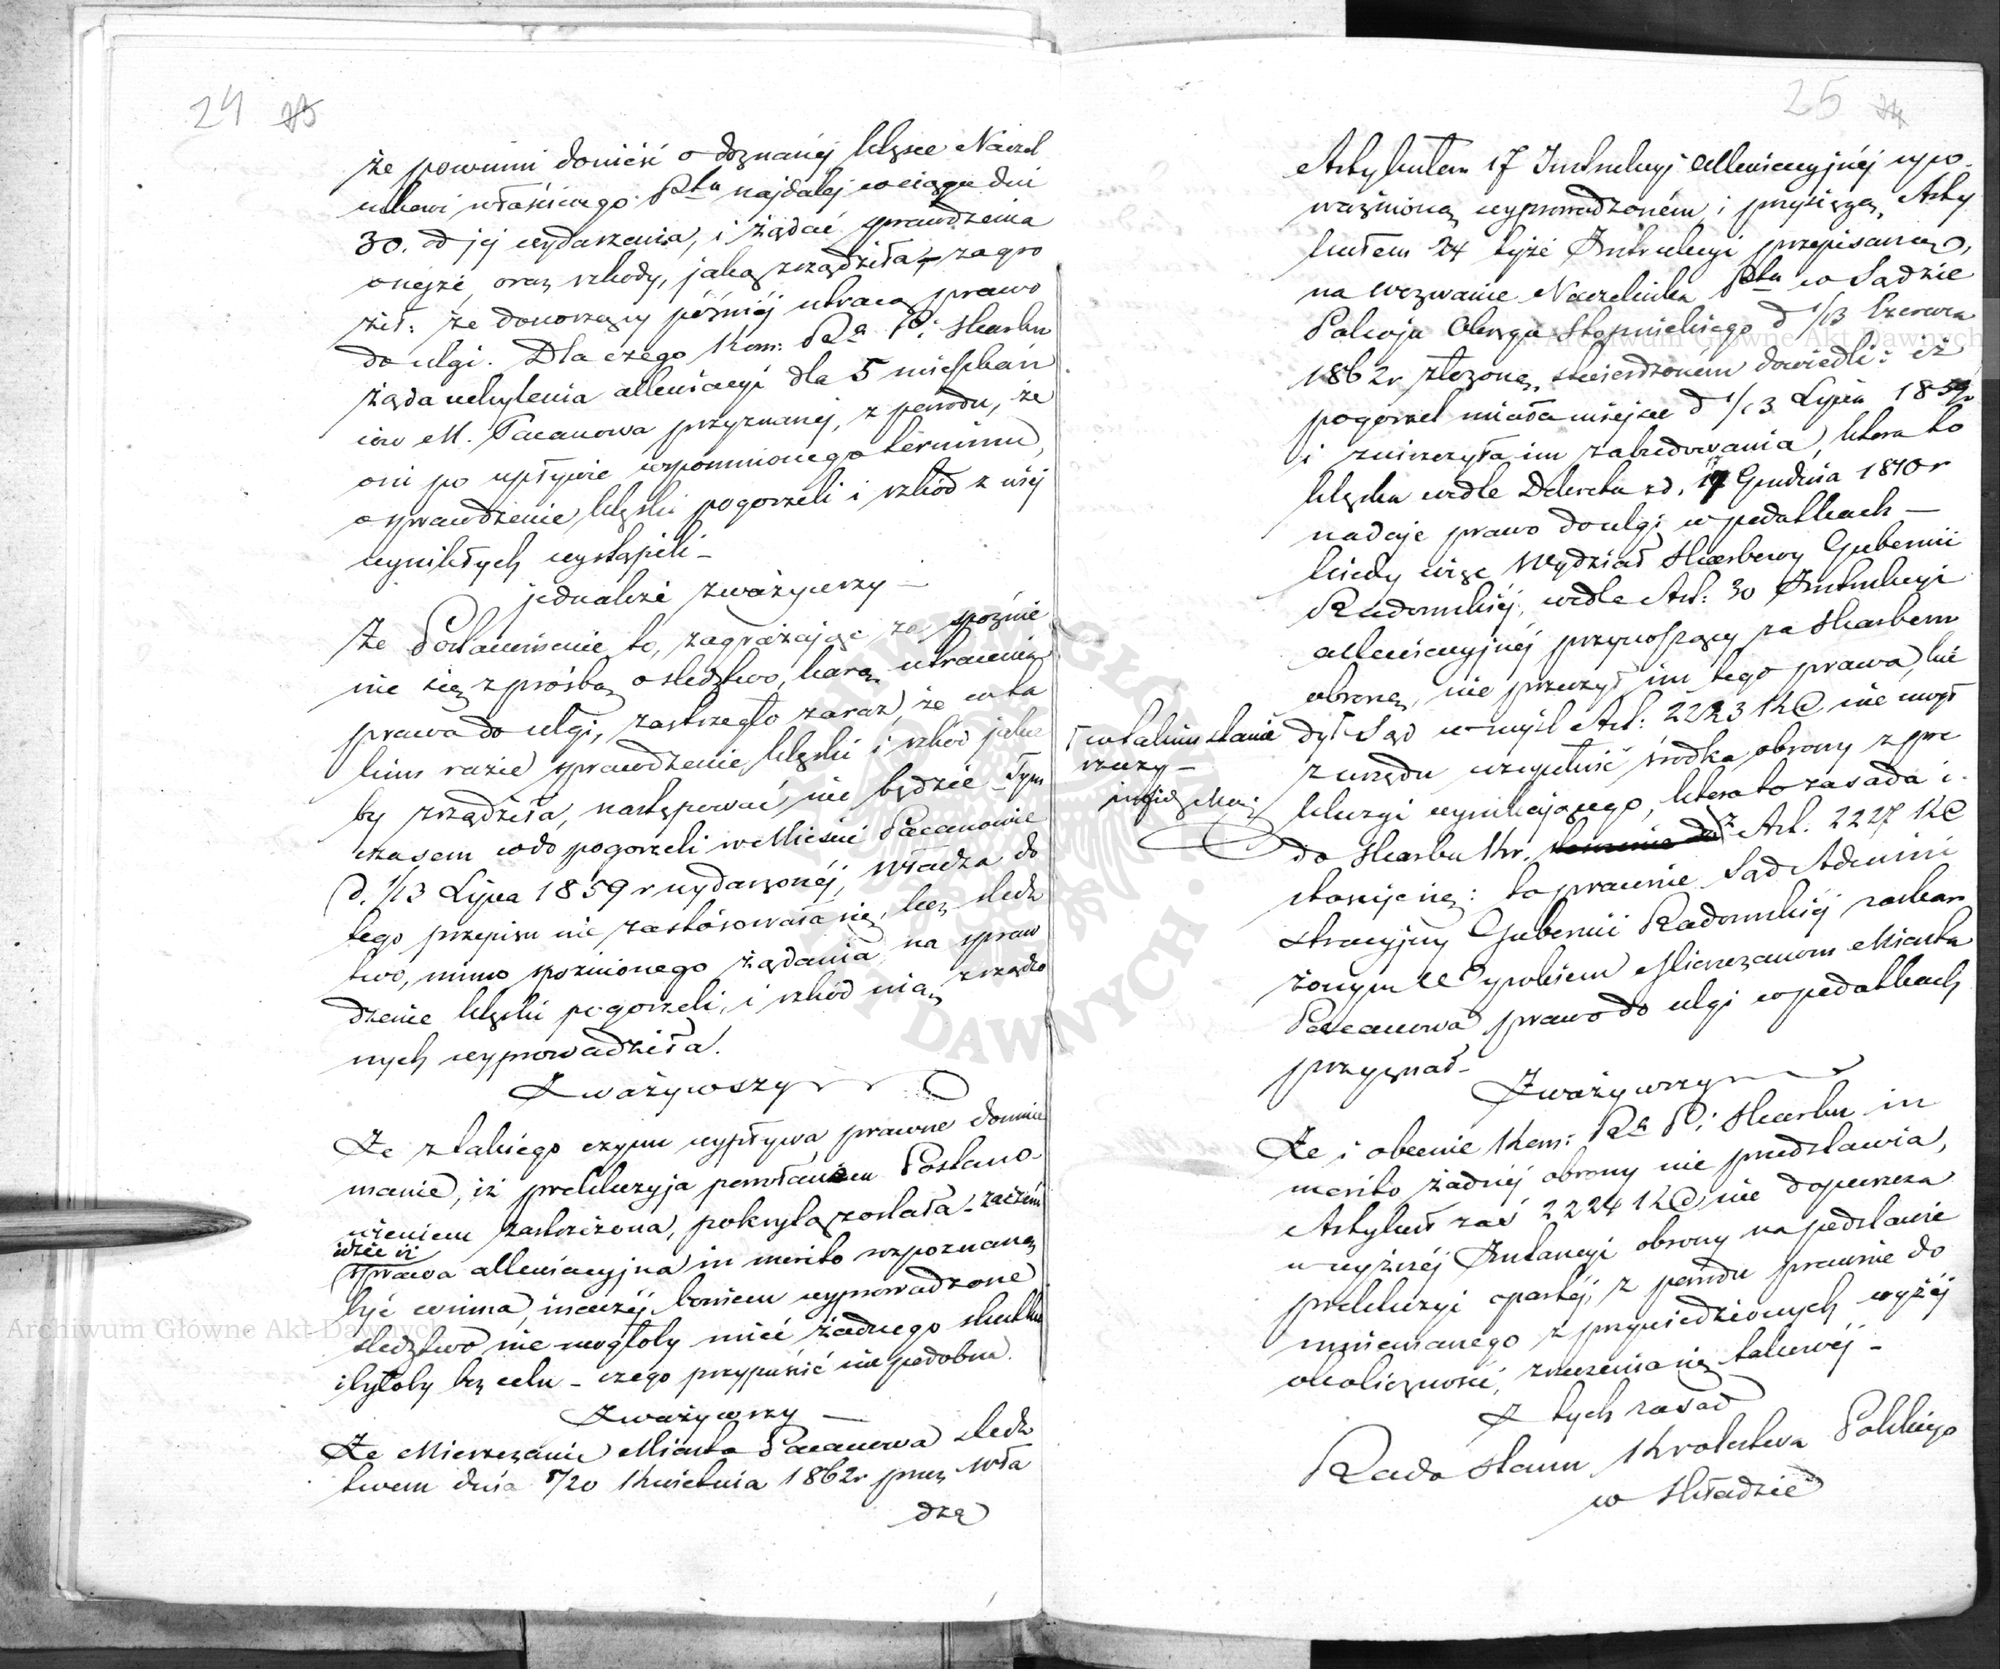 24
że powinni donieść o doznanéj klęsce Naczel
nikowi właściwego Ptu najdaléj w ciągu dni
30. od jéj wydarzenia, i żądać sprawdzenia
onejże, oraz szkody, jaką zrządziła, – zagro
ził: że donoszący późniéj utracą prawo
do ulgi. Dla czego Kom: Ra P: Skarbu
żąda uchylenia allewiacyi dla 5 mieszkań
ców M. Pacanowa przyznanej, z powodu, że
oni po upływie wspomnionego terminu,
o sprawdzenie klęski pogorzeli i szkód z niéj
wynikłych wystąpili –
jednakże zważywszy –
Że Postanowienie to, zagrażając za spóźnie
nie się z prośbą o śledztwo, karą utracenia
prawa do ulgi, zastrzegło zaraz, że w ta
kim razie sprawdzenie klęski i szkód jakie
by zrządziła, następować nie będzie – Tym
czasem co do pogorzeli w Mieście Pacanowie
d. 1/13 Lipca 1859 r wydarzonéj, Władza do
tego przepisu nie zastósowała się, lecz śledz
two, mimo spóźnionego żądania, na spraw
dzenie klęski pogorzeli, i szkód nią zrządzo
nych wyprowadziła.
Zważywszy
Że z takiego czynu wypływa prawne domnie
manie, iż prekluzyja powołanem Postano-
wieniem zastrzeżona, pokrytą została – zaczém
idzie iż
sprawa allewiacyjna in merito rozpoznaną
być winna, inaczéj bowiem wyprowadzone
śledztwo nie mogłoby mieć żadnego skutku
i byłoby bez celu – czego przypuścić nie podobna.
Zważywszy –
Że Mieszczanie Miasta Pacanowa śledz
twem dnia 8/20 Kwietnia 1862 r przez Wła
dzę
25
Artykułem 17 Instrukcyi allewiacyjnéj upo-
ważnioną wyprowadzoném i przysięgą, Arty
kułem 24 tejże Instrukcyi przepisaną,
na wezwanie Naczelnika Ptu w Sądzie
Pokoju Okręgu Stopnickiego d 1/13 Czerwca
1862 r złożoną, stwierdzoném dowiedli: iż
pogorzel miała miejsce d 1/13 Lipca 1859 r
i zniszczyła im zabudowania, która to
klęska wedle Dekretu z d. 17 Grudnia 1810 r
nadaje prawo do ulgi w podatkach –
kiedy więc Wydział Skarbowy Gubernii
Radomskiéj, wedle Art: 30 Instrukcyi
allewiacyjnéj przynoszący za Skarbem
obronę, nie przeczył im tego prawa, kie
dy Sąd w myśl Art: 2223 KC nie mógł
z urzędu uzupełnić środka obrony z pre
kluzyi wynikającego, która to zasada i
do Skarbu Kr. z Art. 2227 KC
stosuje się: to prawnie Sąd Admini
stracyjny Gubernii Radomskiéj zaskar
żonym Wyrokiem Mieszczanom Miasta
Pacanowa prawo do ulgi w podatkach
przyznał –
Zważywszy
Że i obecnie Kom: Ra P: Skarbu in
merito żadnéj obrony nie przedstawia,
Artykuł zaś 2224 KC nie dopuszcza
w wyższéj Instancyi obrony na podstawie
prekluzyi opartéj, z powodu prawnie do
mniemanego z przywiedzionych wyżéj
okoliczność, zrzeczenia się takowéj –
Z tych zasad
Rada Stanu Królestwa Polskiego
w Składzie
w takim stanie
rzeczy –
Archiwum Główne Akt Dawnych
Archiwum Główne Akt Dawnych
ARCHIWUM GŁÓWNE AKT DAWNYCH